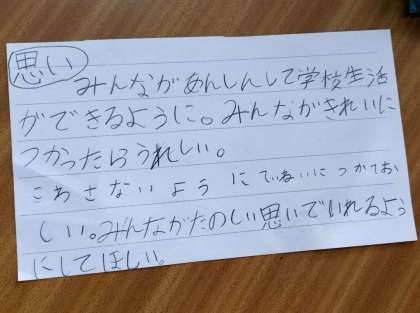 思い
みんながあんしんして学校生活
ができるように。みんながきれいに
つかったらうれしい。
こわさないようにていねいにつかてほ
しい。みんながたのしい思いでいれるよう
にしてほしい。